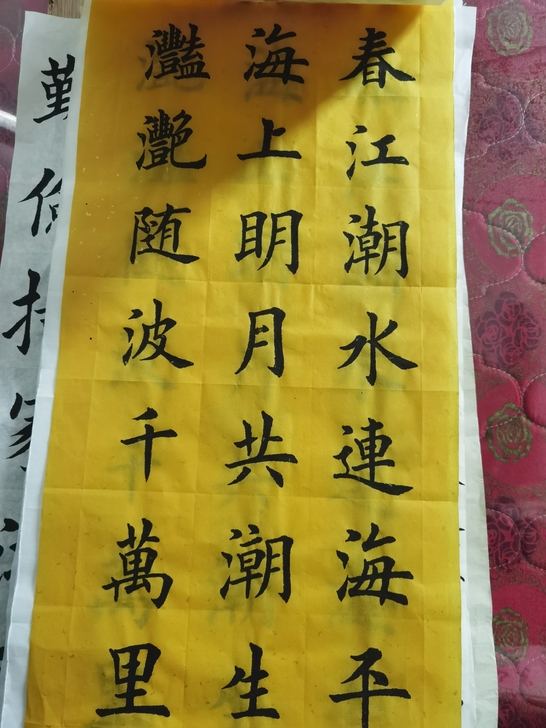 春江潮水連海平
海上明月共潮生
灩灧随波千萬里